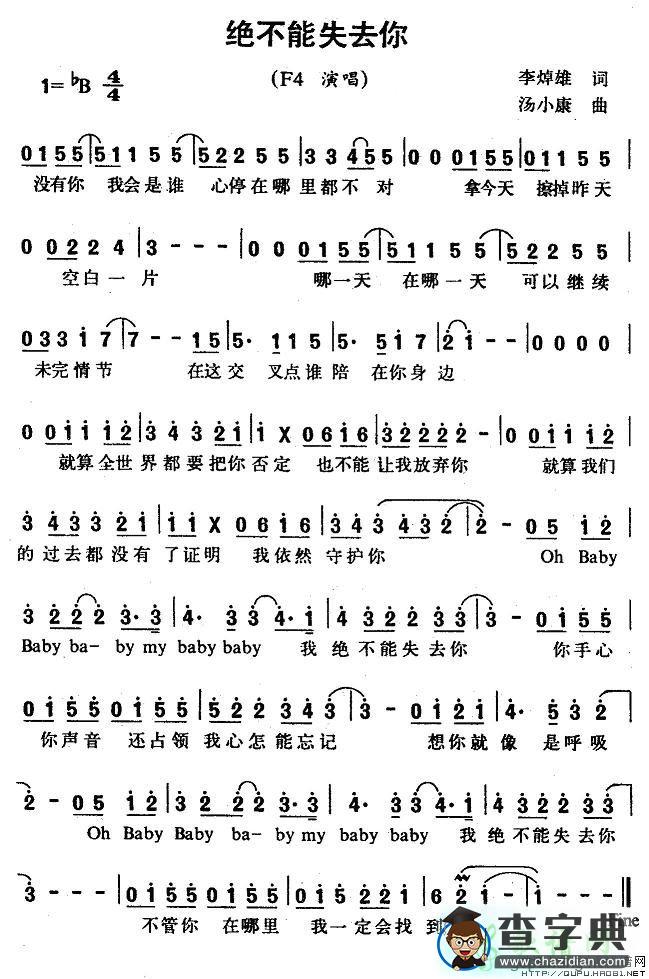 绝不能失去你
1=♭B 4/4 (F4 演唱) 李焯雄 词
汤小康 曲
0155 51155 52255 | 33455 | 000155 | 01155 |
没有你 我会是谁 心停在哪里都不对 拿今天 擦掉昨天
00224 | 3 - - - | 000155 | 511555 | 52255 |
空白一片 哪一天 在哪一天 可以继续
03317 | 7 - - 15 | 5· 115 | 5· 517 | 2 1 - | 0000 |
未完情节 在这交 叉点谁陪 在你身边
001112 | 34321 | 1 X 0616 | 32222 - | 001112 |
就算全世界都要把你否定 也不能让我放弃你 就算我们
343321 | 11 X 0616 | 343432 | 2 - 0512 |
的过去都没有了证明 我依然 守护你 Oh Baby
32223·3 | 4·334·1 | 4322233 | 3 - 0155 |
Baby ba- by my baby baby 我 绝不能失去你 你手心
01550155 | 522343 | 3 - 0121 | 4· 352 |
你声音 还占领 我心怎能忘记 想你就像 是呼吸
2 - 0512 | 32223·3 | 4·334·1 | 4322233 |
Oh Baby Baby ba- by my baby baby 我 绝不能失去你
3 - - | 01550155 | 0155221 | 6 2 1 - | 1 - - - ‖
不管你 在哪里 我一定会找到
查字典
www.chazidian.com